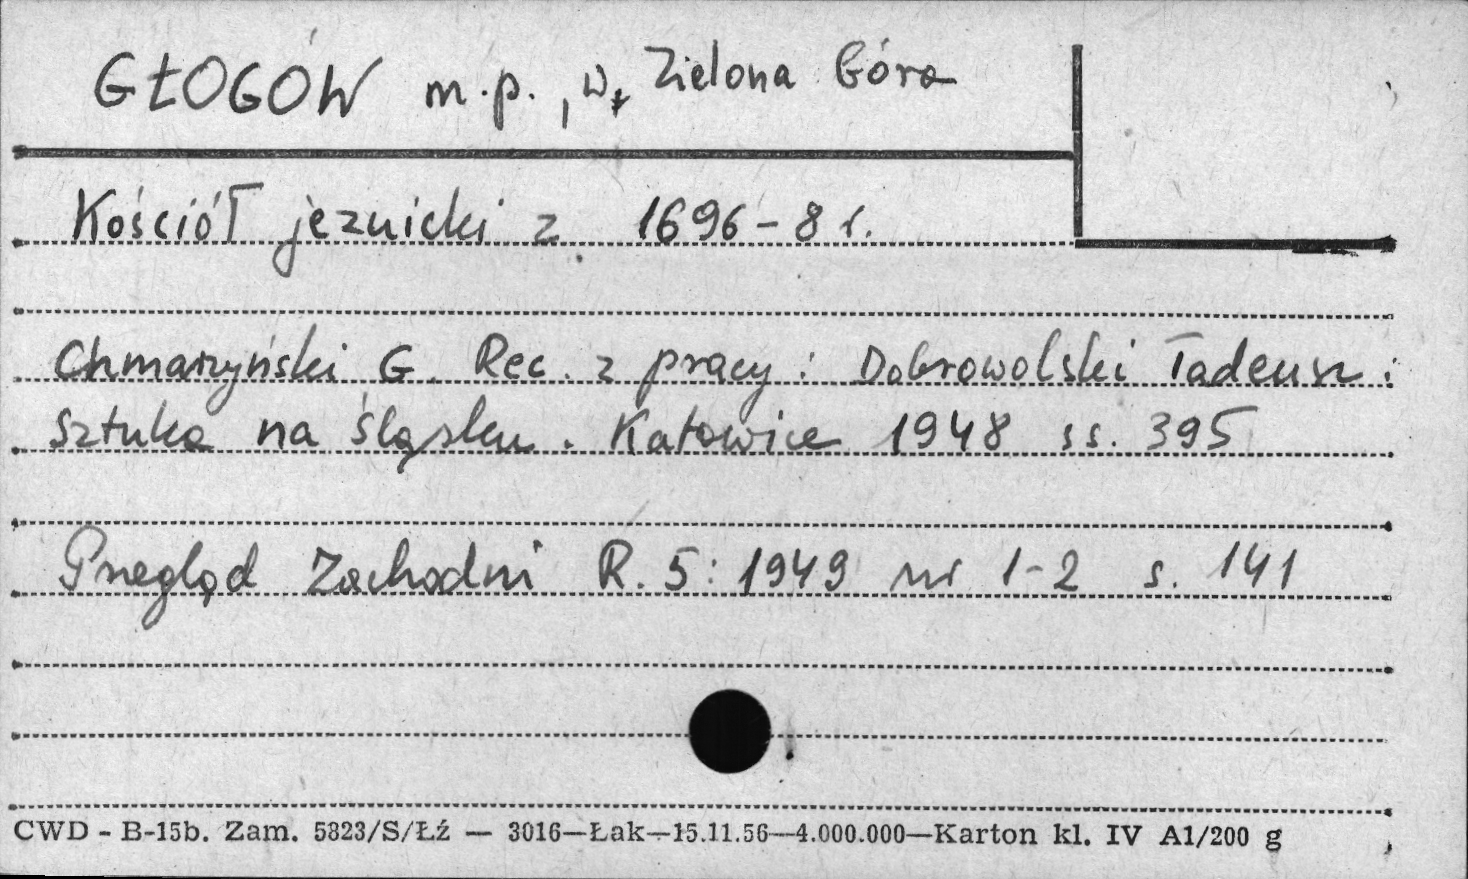 GŁOGÓW m.p., w. Zielona Góra
Kościół jezuicki z 1696-8 r.
Chmarzyński G. Rec. z pracy: Dobrowolski Tadeusz:
Sztuka na Śląsku. Katowice 1948 ss. 395
Przegląd Zachodni R. 5: 1949 nr 1-2 s. 141
CWD - B-15b. Zam. 5823/S/Łź — 3016—Łak—15.11.56—4.000.000—Karton kl. IV A1/200 g